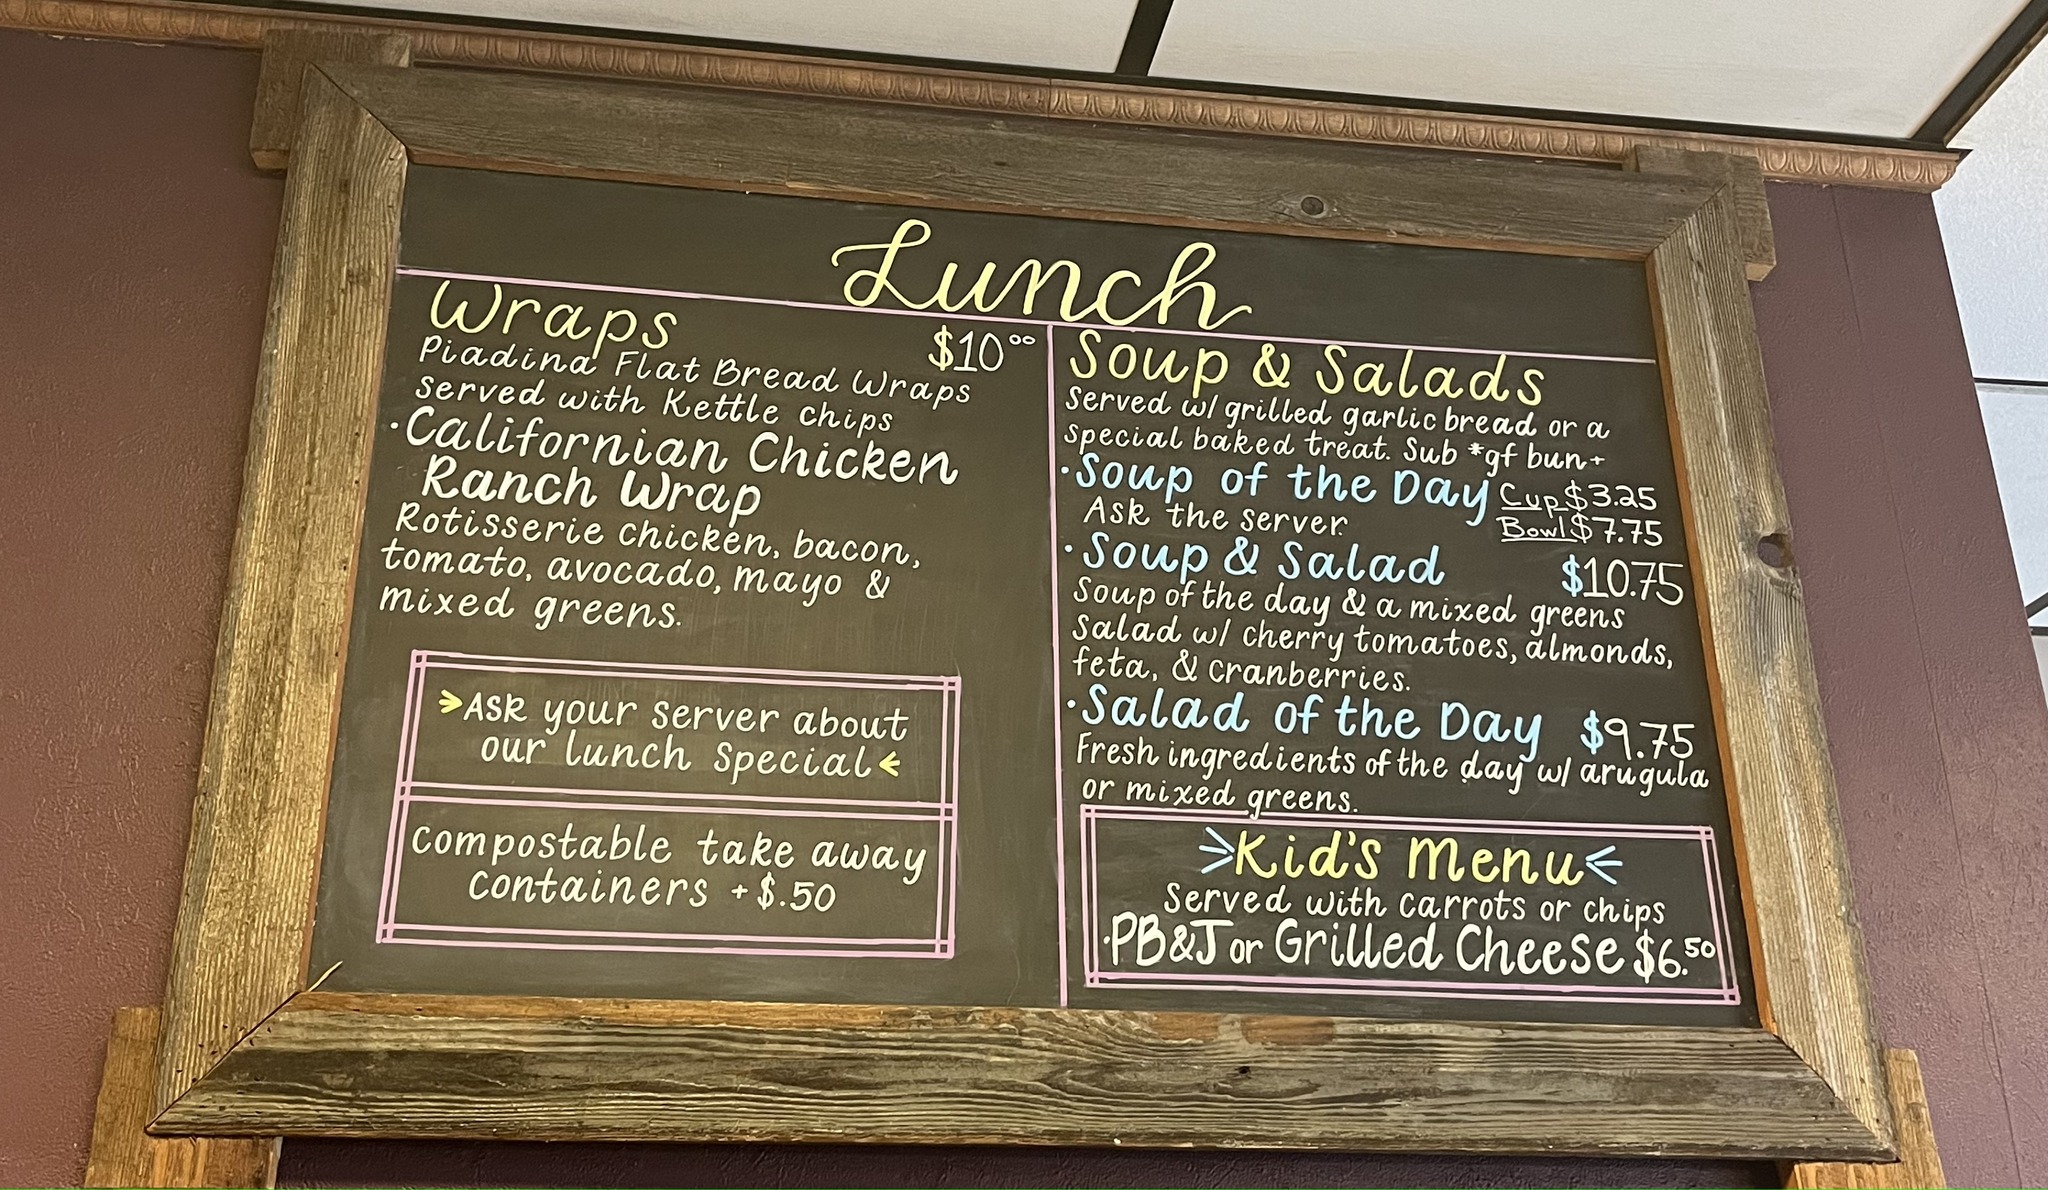 Lunch
Wraps
$10.00
Piadina Flat Bread Wraps
served with Kettle chips
·Californian Chicken
Ranch Wrap
Rotisserie chicken, bacon,
tomato, avocado, mayo &
mixed greens.
Ask your server about
our lunch special
compostable take away
containers +$.50
Soup & Salads
served w/ grilled garlic bread or a
special baked treat. Sub *gf bun+
·Soup of the Day Cup $3.25
Ask the server. Bowl $7.75
·Soup & Salad $10.75
Soup of the day & a mixed greens
salad w/ cherry tomatoes, almonds,
feta, & cranberries.
·Salad of the Day $9.75
Fresh ingredients of the day w/ arugula
or mixed greens.
Kid's Menu
Served with carrots or chips
·PB&J or Grilled Cheese $6.50